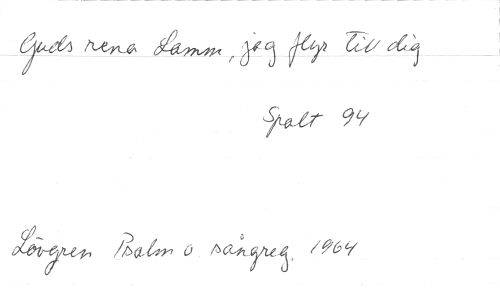 Guds rena Lamm, jag flyr till dig
Spalt 94
Lövgren Psalm o sångreg. 1964